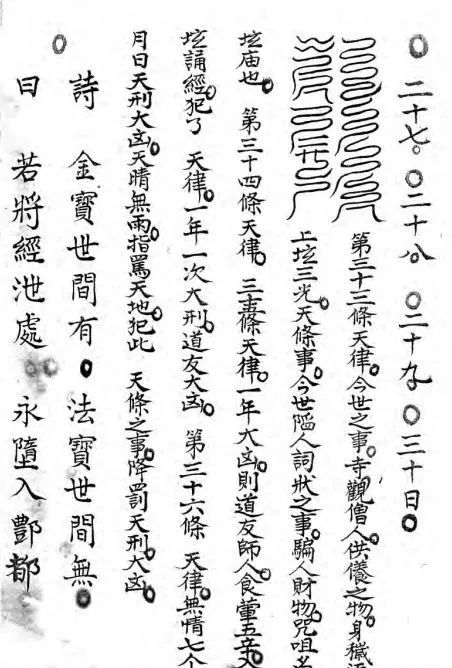 二十七。〇二十八〇二十九〇三十日〇
第三十三條天律。今世之事。寺觀僧人供儀之物。身穢
上坛三光。天條事。今世陷人詞狀之事。騙人財物。咒咀
坛庙也。第三十四條天律。三十五條天律。一年大凶。則道友師人食葷五辛
坛誦經。犯了天律。一年一次大刑。道友大凶。第三十六條天律。無情七个
月日天刑大凶。天晴無雨。指罵天地。犯此天條之事。降罰天刑大凶。
詩 金寶世間有。法寶世間無。
曰 若將經泄處 永墮入酆都